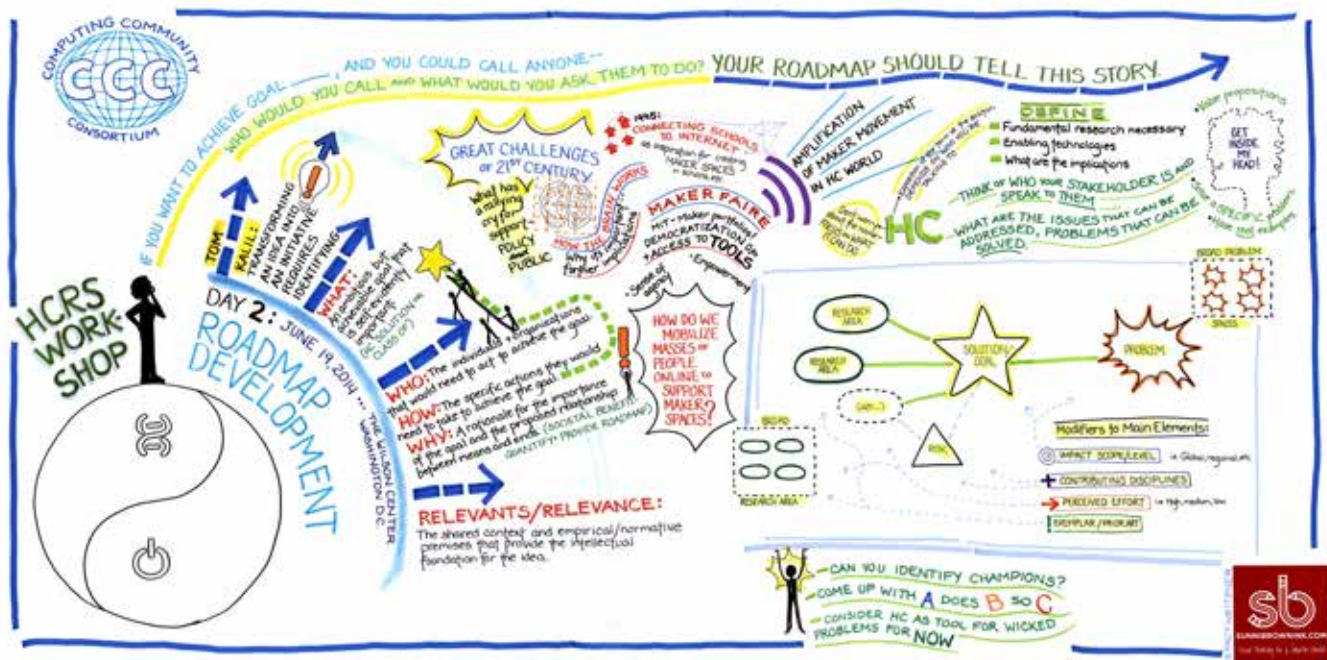 COMPUTING COMMUNITY
CCC
CONSORTIUM
IF YOU WANT TO ACHIEVE GOAL ___, AND YOU COULD CALL ANYONE...
WHO WOULD YOU CALL AND WHAT WOULD YOU ASK THEM TO DO?
YOUR ROADMAP SHOULD TELL THIS STORY.
HCRS
WORK-
SHOP
DAY 2: JUNE 19, 2014 ... THE WILSON CENTER
WASHINGTON D.C.
ROADMAP
DEVELOPMENT
TOM
KALIL:
TRANSFORMING
AN IDEA INTO
AN INITIATIVE
REQUIRES
IDENTIFYING
WHAT:
An ambitious but
achievable goal that
is self-evidently
important
CLASS OF)
WHO: The individuals + organizations
that would need to act to achieve the goal.
HOW: The specific actions they would
need to take to achieve the goal
WHY: A rationale for the importance
of the goal and the proposed relationship
between means and ends. (SOCIETAL BENEFIT
QUANTIFY, PROVIDE ROADMAP)
RELEVANTS/RELEVANCE:
The shared context and empirical/normative
premises that provide the intellectual
foundation for the idea.
GREAT CHALLENGES
OF 21ST CENTURY
What has
a rallying
cry for
support-
POLICY
and
PUBLIC
HOW THE BRAIN WORKS
Why it's important-
further implications
1995:
CONNECTING SCHOOLS
TO INTERNET
as inspiration for creating
MAKER SPACES
MAKER FAIRE
MIT - Maker portfolios!
DEMOCRATIZATION OF
+ ACCESS TO TOOLS
- Sense of
agency
- Empowerment
HOW DO WE
MOBILIZE
MASSES OF
PEOPLE
ONLINE TO
SUPPORT
MAKER
SPACES?
AMPLIFICATION
OF MAKER MOVEMENT
IN HC WORLD
HC
DEFINE
Fundamental research necessary
Enabling technologies
What are the implications
THINK OF WHO YOUR STAKEHOLDER IS AND
SPEAK TO THEM
WHAT ARE THE ISSUES THAT CAN BE
ADDRESSED, PROBLEMS THAT CAN BE
SOLVED.
Value propositions
GET
INSIDE
MY
HEAD!
SPECIFIC problems
RESEARCH
AREA
RESEARCH
AREA
SOLUTION/
GOAL
PROBLEM
RISK
BROAD PROBLEM
SPACES
BROAD
RESEARCH AREA
Modifiers to Main Elements:
IMPACT SCOPE/LEVEL i.e. Global, regional, etc.
CONTRIBUTING DISCIPLINES
PERCEIVED EFFORT i.e. High, medium, low
EXEMPLAR / PRIOR ART
- CAN YOU IDENTIFY CHAMPIONS?
- COME UP WITH A DOES B SO C
- CONSIDER HC AS TOOL FOR WICKED
PROBLEMS FOR NOW
sb
SUNNIBROWNINK.COM